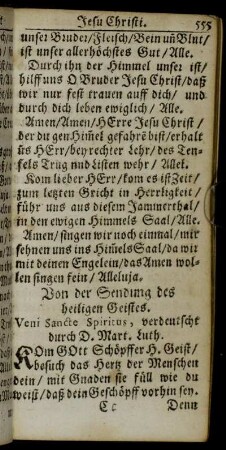 Jesu Christi. 555
unser Bruder/Fleisch/Bein uñ Blut/
ist unser allerhöchstes Gut/Alle.
Durch ihn der Himmel unser ist/
hilff uns O Bruder Jesu Christ/daß
wir nur fest trauen auff dich/ und
durch dich leben ewiglich/ Alle.
Amen/Amen/HErre Jesu Christ/
der du gen Him̃el gefahrē bist/erhalt
ũs HErr/bey rechter Lehr/des Teu-
fels Trug und Listen wehr/ Allel.
Kom lieber HErr/kom es ist Zeit/
zum letzten Gricht in Herrligkeit/
führ uns aus diesem Jammerthal/
in den ewigen Himmels Saal/Alle.
Amen/singen wir noch einmal/wir
sehnen uns ins Him̃els Saal/da wir
mit deinen Engelein/das Amen wol-
len singen fein/Alleluja.
Von der Sendung des
heiligen Geistes.
Veni Sancte Spiritus, verdeutscht
durch D. Mart. Luth.
KOm GOtt Schöpffer H. Geist/
besuch das Hertz der Menschen
dein/mit Gnaden sie füll wie du
weist/daß dein Geschöpff vorhin sey.
Cc Denn